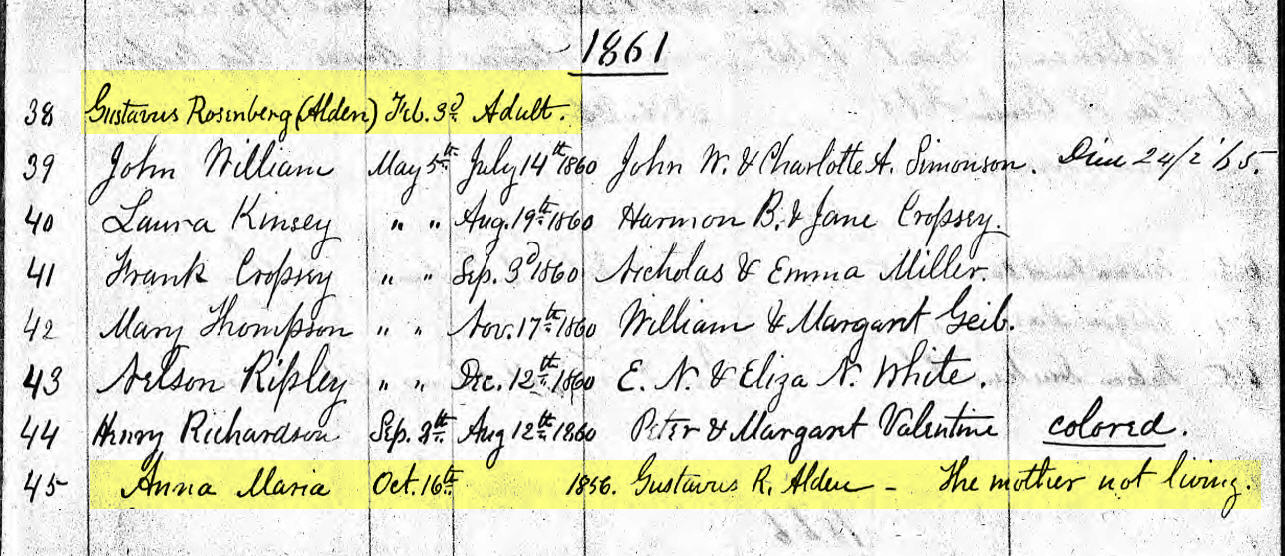 1861
38 Gustavus Rosenberg (Alden) Feb. 3d Adult.
39 John William May 5th July 14th 1860 John W. & Charlotte A. Simonson. Dim 24/2 '65.
40 Laura Kinsey " " Aug. 19th 1860 Harmon B. & Jane Cropsey.
41 Frank Cropsey " " Sep. 3d 1860 Nicholas & Emma Miller.
42 Mary Thompson " " Nov. 17th 1860 William & Margaret Geib.
43 Nelson Ripley " " Dec. 12th 1860 E. N. & Eliza N. White.
44 Henry Richardson Sep. 8th Aug 12th 1860 Peter & Margaret Valentine colored.
45 Anna Maria Oct. 16th 1856. Gustavus R. Alden - The mother not living.